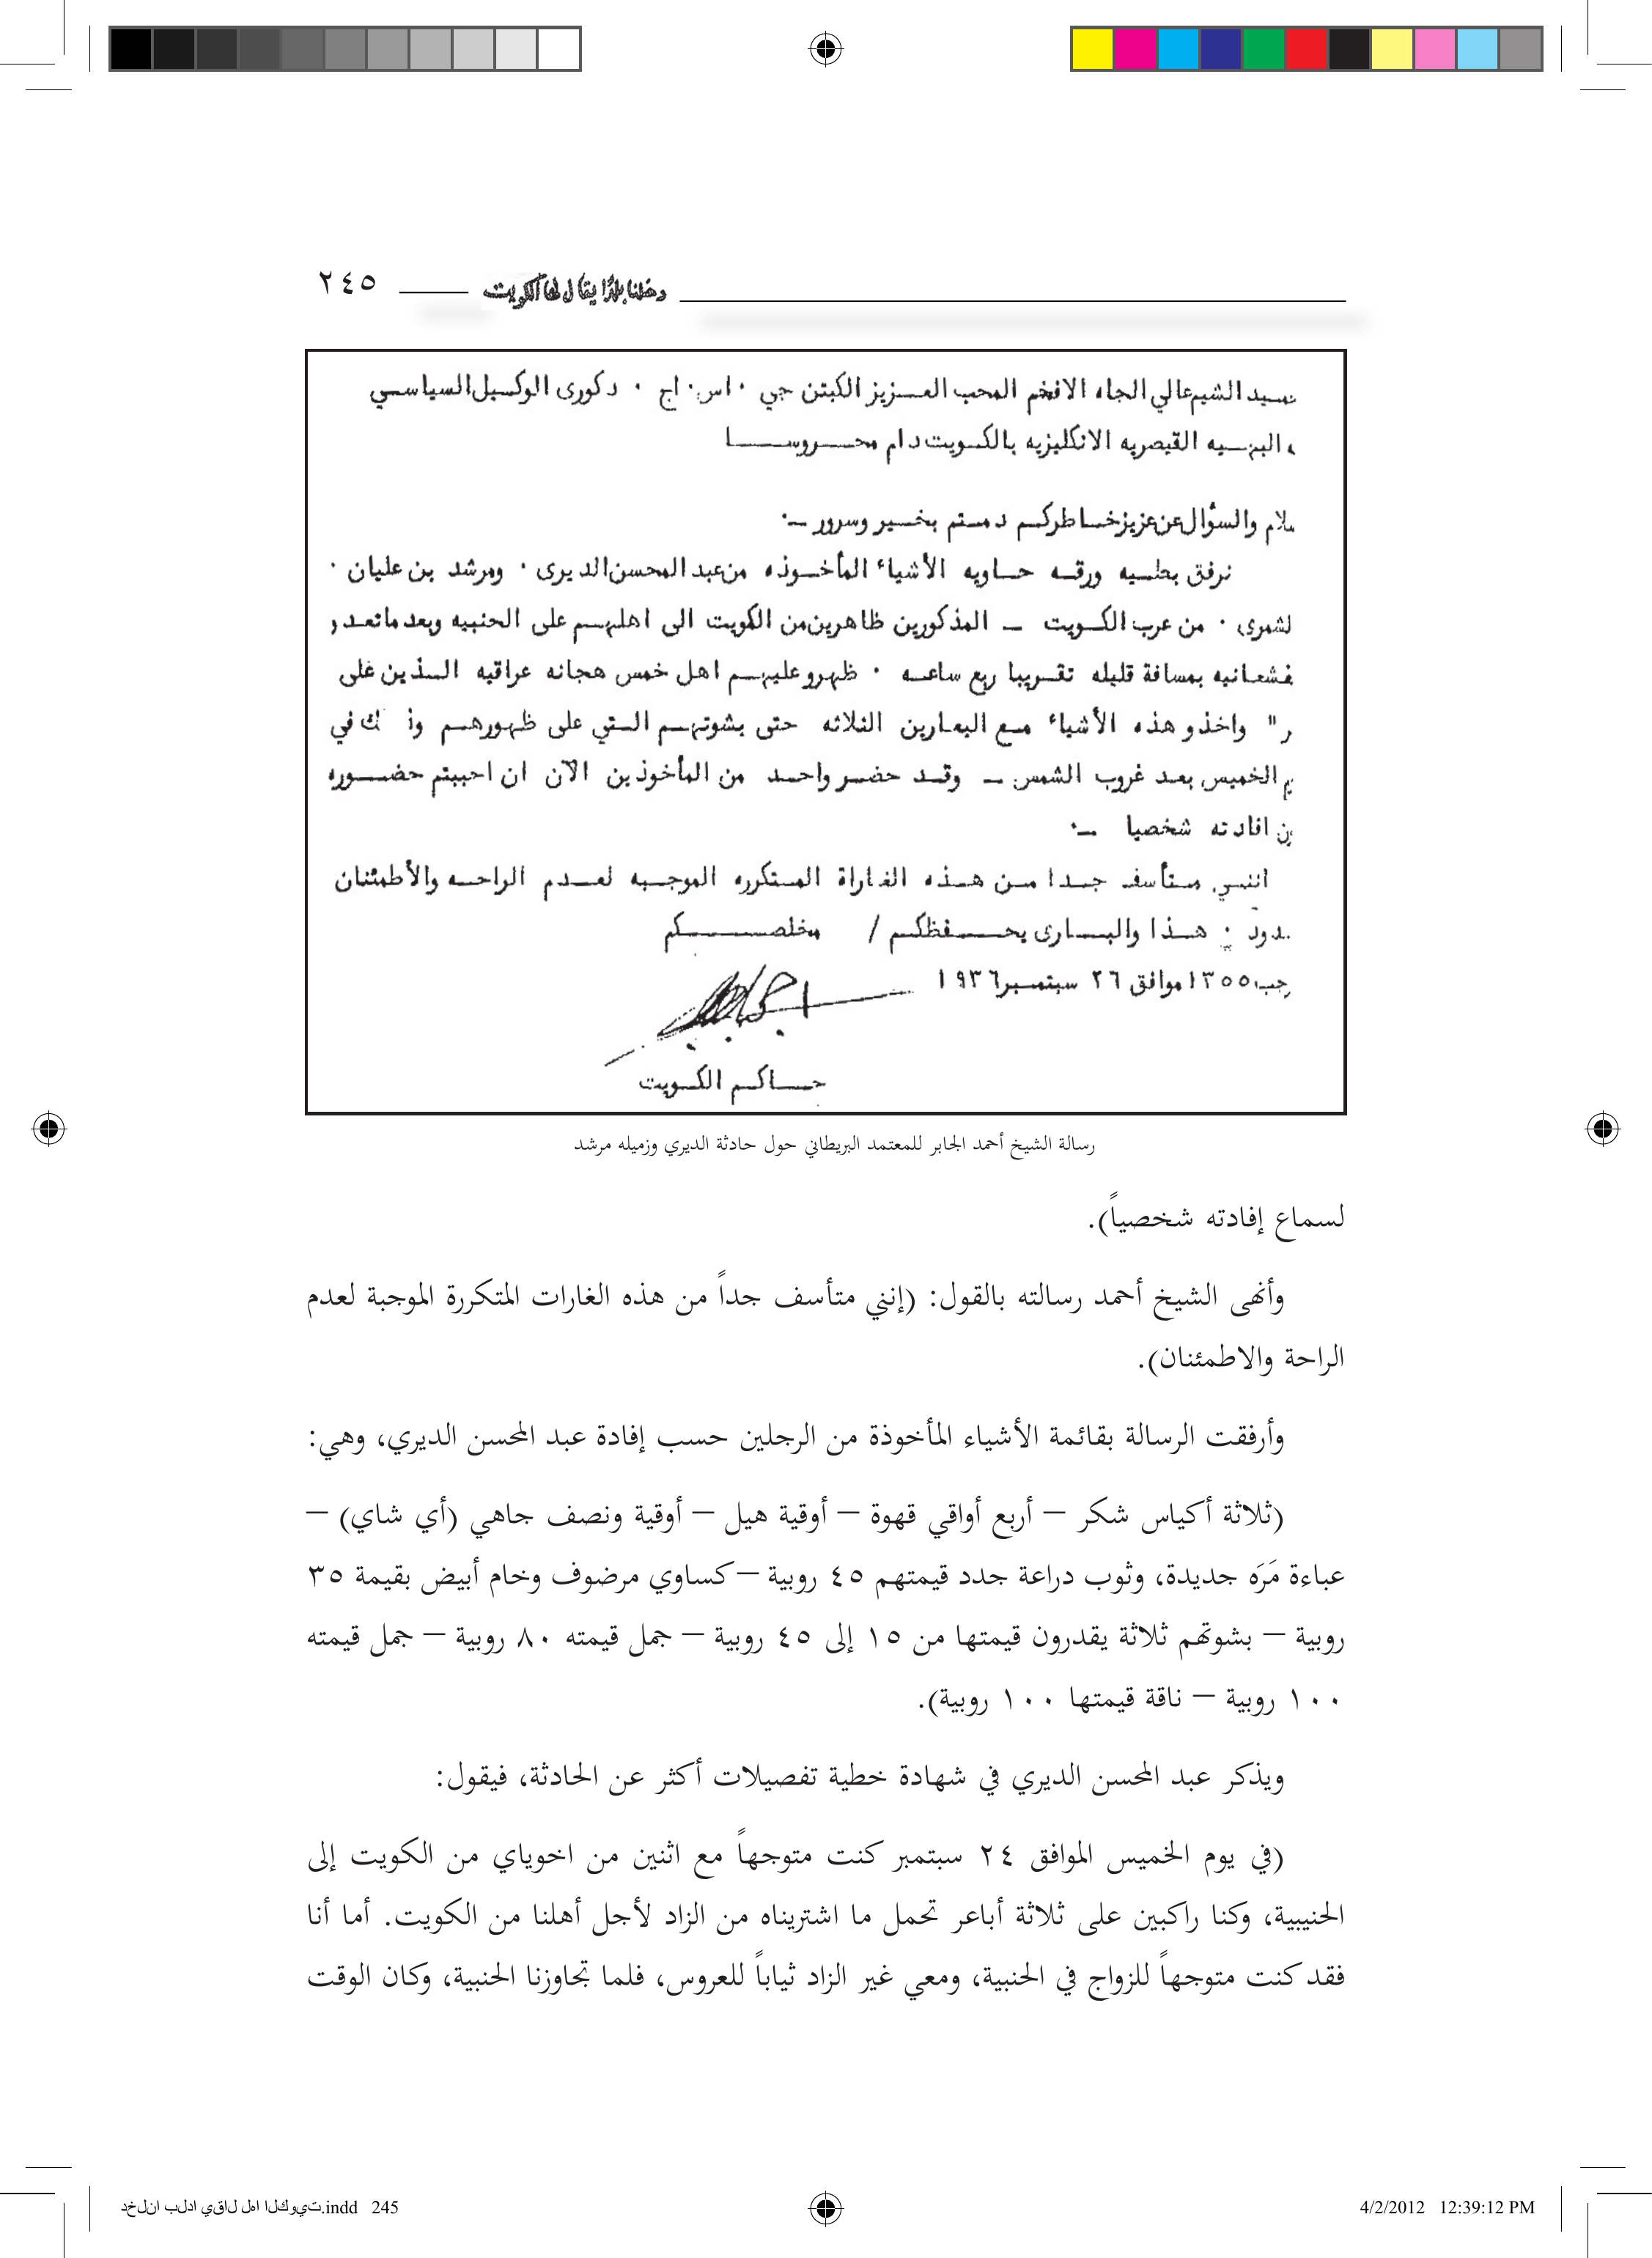 دخلنا بلدًا يقال لها الكويت ٢٤٥
الشيم عالي الجاه الافخم المحب العزيز الكبتن جي ٠ اس٠ اج ٠ دكورى الوكيل السياسي
القيصريه الانكليزيه بالكويت دام محروسا
والسؤال عن عزيز خاطركم دمتم بخير وسرور ــ٠
نرفق بطيه ورقه حاويه الأشياء المأخوذه من عبد المحسن الديرى ٠ ومرشد بن عليان ٠
لشمرى ٠ من عرب الكويت ــ المذكورين ظاهرين من الكويت الى اهليهم على الحنبيه وبعد ماتعدو
فشعانيه بمسافة قليله تقريبا ربع ساعه ٠ ظهرو عليهم اهل خمس هجانه عراقيه الذين على
ر" واخذو هذه الأشياء مع البعارين الثلاثه حتى بشوتهم التي على ظهورهم وذ ك في
الخميس بعد غروب الشمس ــ وقد حضر واحد من المأخوذين الآن ان احببتم حضوره
افادته شخصيا ــ٠
انني متأسف جدا من هذه الغاراة المتكرره الموجبه لعدم الراحه والأطمئنان
هذا والبارى يحفظكم / مخلصكم
رجب ١٣٥٥ موافق ٢٦ سبتمبر ١٩٣٦
حاكم الكويت
رسالة الشيخ أحمد الجابر للمعتمد البريطاني حول حادثة الديري وزميله مرشد
لسماع إفادته شخصياً).
وأنهى الشيخ أحمد رسالته بالقول: (إنني متأسف جداً من هذه الغارات المتكررة الموجبة لعدم
الراحة والاطمئنان).
وأرفقت الرسالة بقائمة الأشياء المأخوذة من الرجلين حسب إفادة عبد المحسن الديري، وهي:
(ثلاثة أكياس شكر – أربع أواقي قهوة – أوقية هيل – أوقية ونصف جاهي (أي شاي) –
عباءة مَرَه جديدة، وثوب دراعة جدد قيمتهم ٤٥ روبية – كساوي مرضوف وخام أبيض بقيمة ٣٥
روبية – بشوتهم ثلاثة يقدرون قيمتها من ١٥ إلى ٤٥ روبية – جمل قيمته ٨٠ روبية – جمل قيمته
١٠٠ روبية – ناقة قيمتها ١٠٠ روبية).
ويذكر عبد المحسن الديري في شهادة خطية تفصيلات أكثر عن الحادثة، فيقول:
(في يوم الخميس الموافق ٢٤ سبتمبر كنت متوجهاً مع اثنين من اخوياي من الكويت إلى
الحنيبية، وكنا راكبين على ثلاثة أباعر تحمل ما اشتريناه من الزاد لأجل أهلنا من الكويت. أما أنا
فقد كنت متوجهاً للزواج في الحنبية، ومعي غير الزاد ثياباً للعروس، فلما تجاوزنا الحنبية، وكان الوقت
دخلنا بلدا يقال لها الكويت.indd 245 4/2/2012 12:39:12 PM